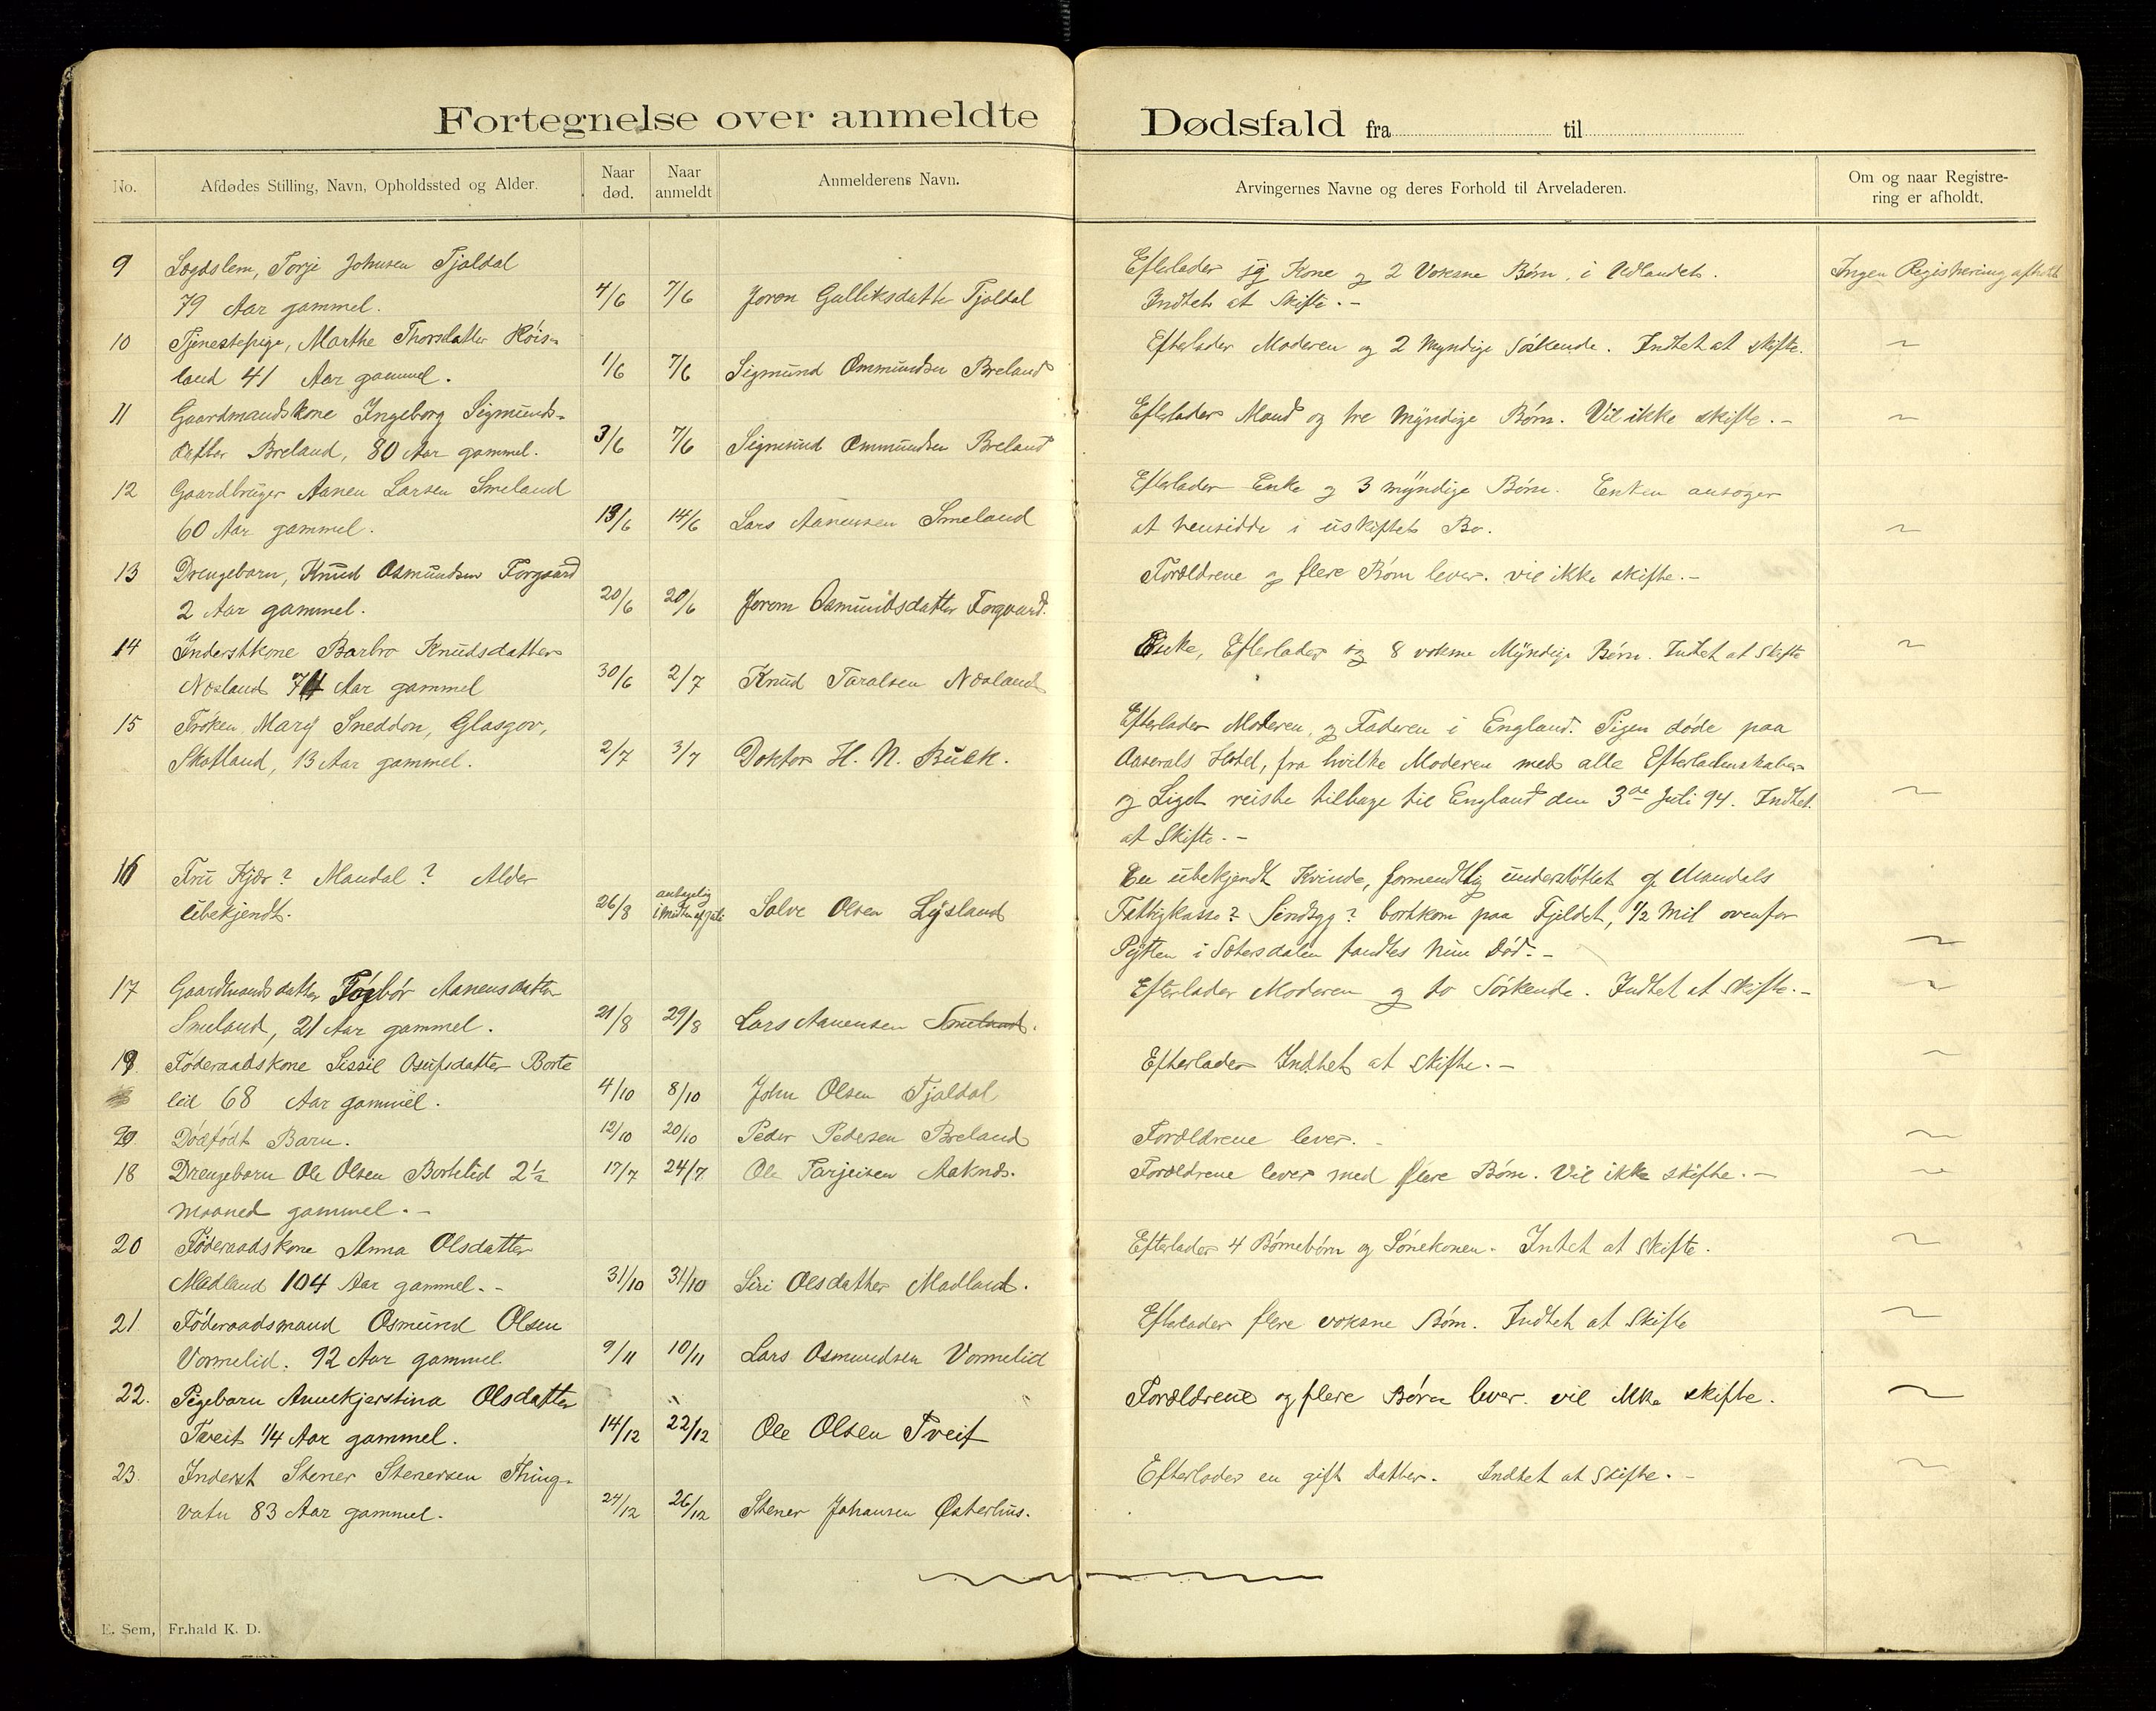 Fortegnelse over anmeldte Dødsfald fra til
No. Afdødes Stilling, Navn, Opholdssted og Alder. Naar død. Naar anmeldt Anmelderens Navn. Arvingernes Navne og deres Forhold til Arveladeren. Om og naar Registrering er afholdt.
9 Lægdslem, Torje Johnsen Tjaldal Efterlader sig Kone og 2 Voksne Børn, i Udlandet. Ingen Registrering afholdt
79 Aar gammel. 4/6 7/6 Joren Gulliksdatter Tjaldal Indtet at Skifte. –
10 Tjenestepige, Marthe Thorsdatter Røis= Efterlader Moderen og 2 Myndige Söskende. Indtet at skifte. ~
land 41 Aar gammel. 1/6 7/6 Sigmund Ommundsen Breland
11 Gaardmandskone Ingeborg Sigmunds= Efterlader Mand og tre Myndige Børn. Vil ikke skifte. – ~
datter Breland, 80 Aar gammel. 3/6 7/6 Sigmund Ommundsen Breland
12 Gaardbruger Aanen Larsen Smeland Efterlader Enke og 3 myndige Børn. Enken ansøger
60 Aar gammel. 13/6 14/6 Lars Aanensen Smeland at hensidde i uskiftet Bo. ~
13 Drengebarn, Knud Osmundsen Forgaard Forældrene og flere Børn lever. vil ikke skifte. –
2 Aar gammel. 20/6 20/6 Jorom Osmundsdatter Forgaard.
14 Inderstkone Barbro Knudsdatter Enke, Efterlader sig 8 voksne Myndige Börn. Indtet at Skifte ~
Næsland 74 Aar gammel 30/6 2/7 Knud Taralsen Næsland
15 Frøken, Mary Sneddon, Glasgov, Efterlader Moderen, og Faderen i England. Pigen døde paa
Skotland, 13 Aar gammel. 2/7 3/7 Doktor H. N. Buck. Aaserals Hotel, fra hvilke Moderen med alle Efterladenskaber
og Liget reiste tilbage til England den 3de Juli 94. Indtet ~
at Skifte. –
16 Fru Kjær? Mandal? Alder En ubekjendt Kvinde, formendtlig understöttet af Mandals
Ubekjendt. 26/8 i midten af Juli Salve Olsen Ljosland Fattigkasse? Sindsyg? bortkom paa Fjeldet, 1/2 Mil ovenfor
Pytten i Sætersdalen fandtes hun Død. – ~
17 Gaardmandsdatter Torbør Aanensdatter Efterlader Moderen og to Söskende. Indtet at skifte. – ~
Smeland, 21 Aar gammel. 21/8 29/8 Lars Aanensen Smeland.
19 Føderaadskone Sissil Osufsdatter Borte Efterlader Indtet at skifte. – ~
lid 68 Aar gammel. 4/10 8/10 John Olsen Tjaldal
20 Dødfødt Barn. 12/10 20/10 Peder Pedersen Breland Forældrene lever. – ~
18 Drengebarn Ole Olsen Bortelid 2 1/2 17/7 24/7 Ole Tarjeisen Aaknes. Forældrene lever med flere Børn. Vil ikke skifte. – ~
Maaned gammel. –
20 Føderaadskone Anna Olsdatter Efterlader 4 Børnebørn og Sønekonen. Intet at skifte. ~
Madland 104 Aar gammel. – 31/10 31/10 Siri Olsdatter Madland.
21 Føderaadsmand Osmund Olsen Efterlader flere voksne Børn. Indtet at Skifte ~
Vormelid. 92 Aar gammel. 9/11 10/11 Lars Osmundsen Vormelid
22. Pigebarn Annekjerstina Olsdatter Forældrene og flere Børn lever. vil ikke skifte. ~
Tveit 1/4 Aar gammel. 14/12 22/12 Ole Olsen Tveit
23. Inderst Stener Stenersen Thing= Efterlader en gift Datter. Indtet at Skifte. – ~
vatn 83 Aar gammel. 24/12 26/12 Stener Johansen Østerhus.
E. Sem, Fr.hald K. D.